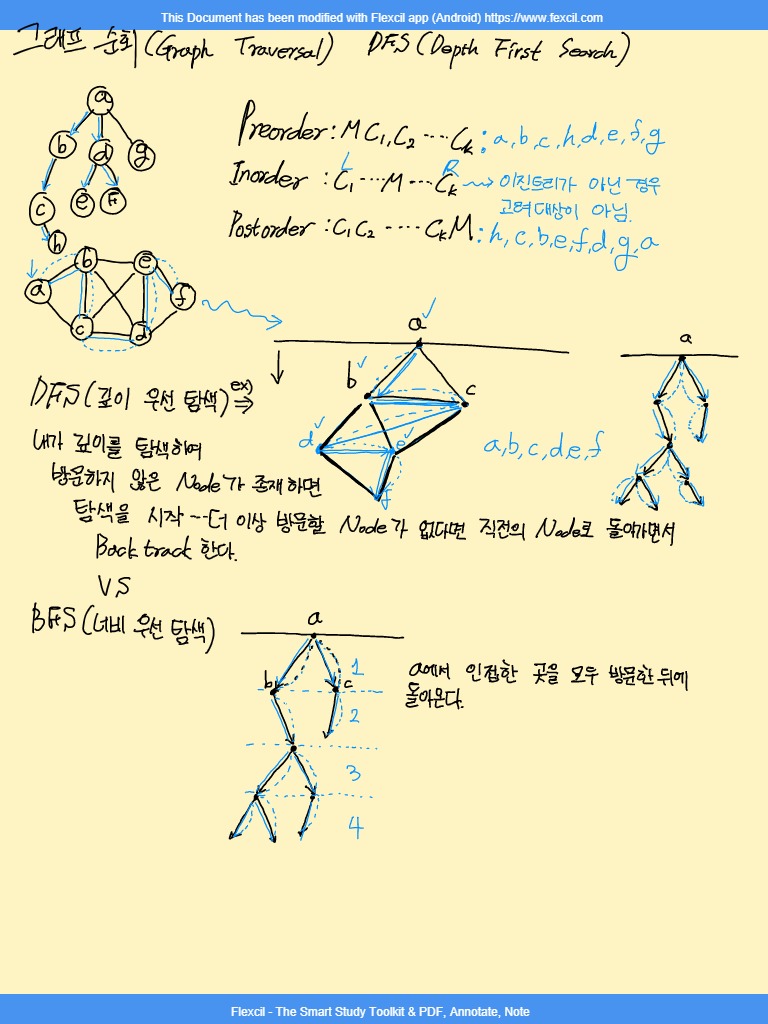 This Document has been modified with Flexcil app (Android) https://www.fexcil.com
그래프 순회(Graph Traversal) DFS(Depth First Search)
a
b d g
c e F
h
Preorder : M C1, C2 ···· Ck : a, b, c, h, d, e, f, g
L R
Inorder : C1 ··· M ··· Ck 이진트리가 아닌 경우
고려대상이 아님.
Postorder : C1 C2 ····· Ck M : h, c, b, e, f, d, g, a
b e
a f
c d
a
b c
d e
f
a, b, c, d, e, f
a
DFS(깊이 우선 탐색) ex) ⇒
내가 깊이를 탐색하여
방문하지 않은 Node가 존재하면
탐색을 시작 ···· 더 이상 방문할 Node가 없다면 직전의 Node로 돌아가면서
Back track 한다.
VS
BFS(너비 우선 탐색)
a
b c 1
2
3
4
a에서 인접한 곳을 모두 방문한 뒤에
돌아온다.
Flexcil - The Smart Study Toolkit & PDF, Annotate, Note